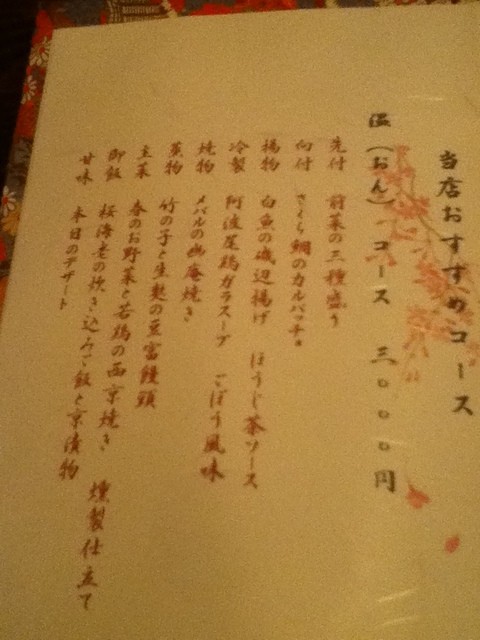 当店おすすめコース
温（おん） コース 三〇〇〇円
先付 前菜の三種盛り
向付 さくら鯛のカルパッチョ
揚物 白魚の磯辺揚げ ほうじ茶ソース
冷製 阿波尾鶏ガラスープ ごぼう風味
焼物 メバルの幽庵焼き
蒸物 竹の子と生麩の豆富饅頭
主菜 春のお野菜と若鶏の西京焼き 燻製仕立て
御飯 桜海老の炊き込みご飯と京漬物
甘味 本日のデザート